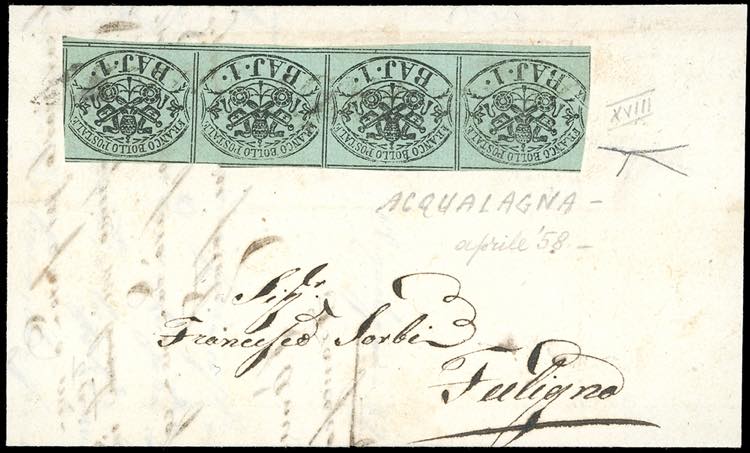 BAJ. 1. BAJ. 1. BAJ. 1. BAJ. 1.
FRANCO BOLLO POSTALE FRANCO BOLLO POSTALE FRANCO BOLLO POSTALE FRANCO BOLLO POSTALE
XVIII
ACQUALAGNA –
aprile '58 –
Sigr.
Francesco Sorbi
Fuligno